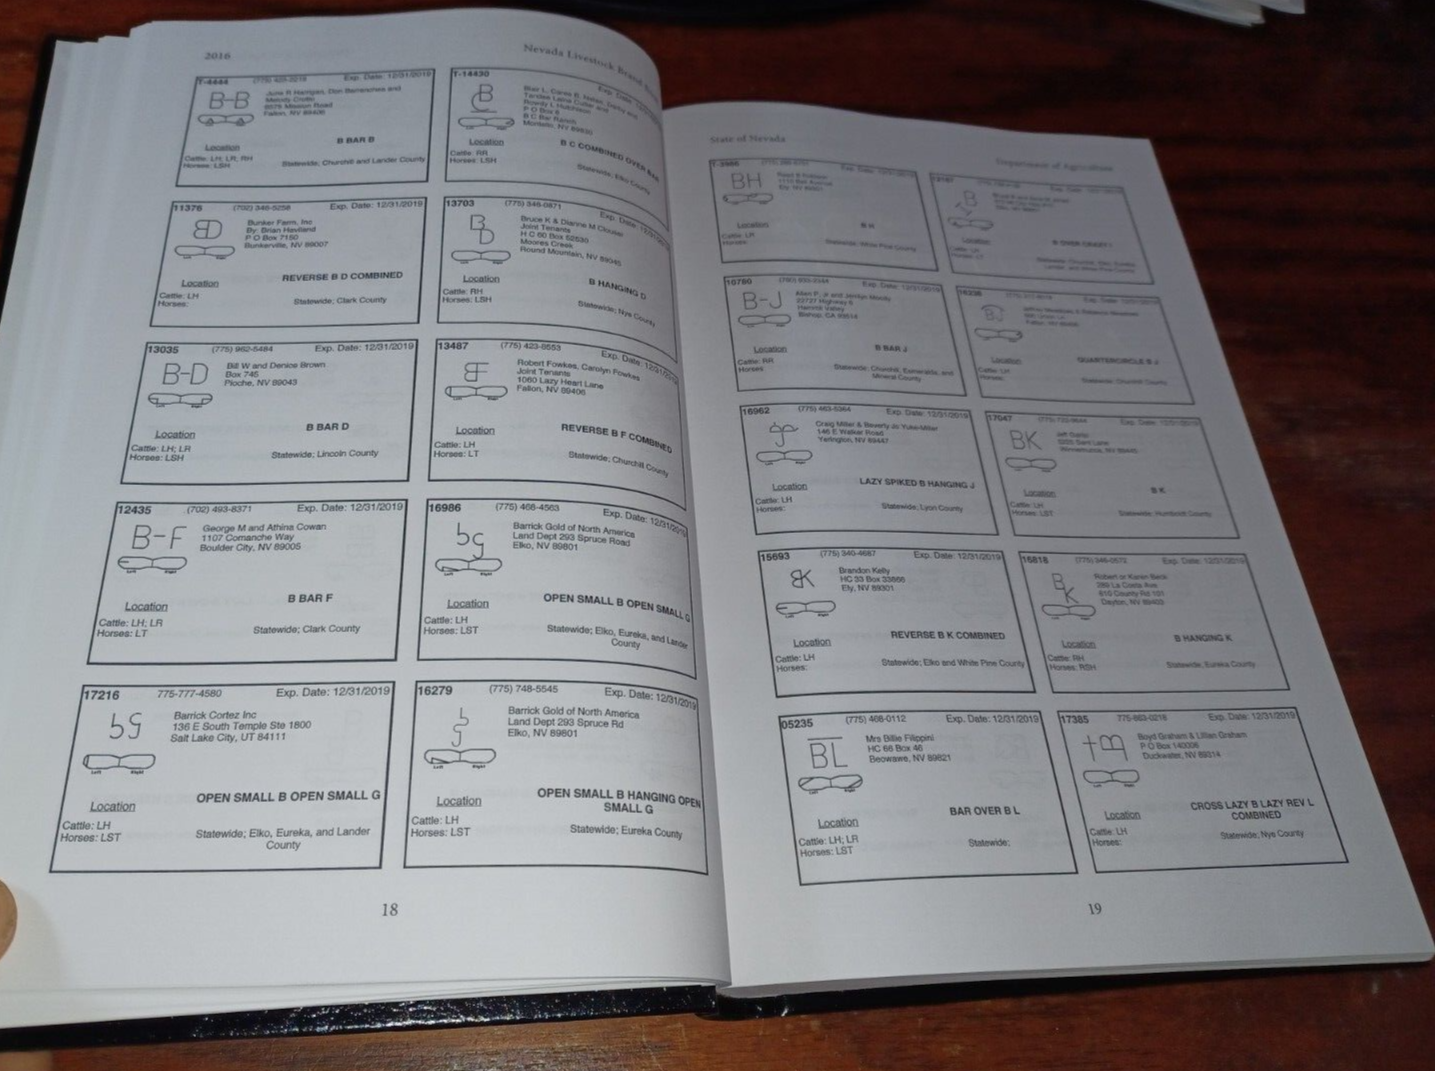 2016
Nevada Livestock Brand
T-4444 (775) Exp. Date: 12/31/2019
B-B
June R Harrigan, Don and
Melody
Mission Road
Fallon, NV 89406
B BAR B
Location
Cattle: LH; LR; RH
Horses: LSH
Statewide; Churchill and Lander County
T-14430 Exp. Date: 12/31/2019
B C
P O Box 6
B C Bar Ranch
Montello, NV 89830
B C COMBINED OVER BAR
Location
Cattle: RR
Horses: LSH
Statewide; Elko County
11376 (702) 346-5258 Exp. Date: 12/31/2019
Bunker Farm, Inc
By: Brian Haviland
P O Box 7150
Bunkerville, NV 89007
Left Right
REVERSE B D COMBINED
Location
Cattle: LH
Horses:
Statewide; Clark County
13703 (775) 346-0871 Exp. Date: 12/31/2019
B
D
Bruce K & Dianne M Clouser
Joint Tenants
H C 60 Box 52530
Moores Creek
Round Mountain, NV 89045
Left Right
B HANGING D
Location
Cattle: RH
Horses: LSH
Statewide; Nye County
13035 (775) 962-5484 Exp. Date: 12/31/2019
B-D
Bill W and Denice Brown
Box 745
Pioche, NV 89043
Left Right
B BAR D
Location
Cattle: LH; LR
Horses: LSH
Statewide; Lincoln County
13487 (775) 423-8553 Exp. Date: 12/31/2019
Robert Fowkes, Carolyn Fowkes
Joint Tenants
1060 Lazy Heart Lane
Fallon, NV 89406
Left Right
REVERSE B F COMBINED
Location
Cattle: LH
Horses: LT
Statewide; Churchill County
12435 (702) 493-8371 Exp. Date: 12/31/2019
B-F
George M and Athina Cowan
1107 Comanche Way
Boulder City, NV 89005
Left Right
B BAR F
Location
Cattle: LH; LR
Horses: LT
Statewide; Clark County
16986 (775) 468-4563 Exp. Date: 12/31/2019
bg
Barrick Gold of North America
Land Dept 293 Spruce Road
Elko, NV 89801
Left Right
OPEN SMALL B OPEN SMALL G
Location
Cattle: LH
Horses: LST
Statewide; Elko, Eureka, and Lander
County
17216 775-777-4580 Exp. Date: 12/31/2019
bg
Barrick Cortez Inc
136 E South Temple Ste 1800
Salt Lake City, UT 84111
Left Right
OPEN SMALL B OPEN SMALL G
Location
Cattle: LH
Horses: LST
Statewide; Elko, Eureka, and Lander
County
16279 (775) 748-5545 Exp. Date: 12/31/2019
b
g
Barrick Gold of North America
Land Dept 293 Spruce Rd
Elko, NV 89801
Left Right
OPEN SMALL B HANGING OPEN
SMALL G
Location
Cattle: LH
Horses: LST
Statewide; Eureka County
18
State of Nevada
Department of Agriculture
Exp. Date: 12/31/2019
BH
Ely, NV 89301
B H
Location
Cattle: LR
Horses:
Statewide; White Pine County
B
Location
Cattle: LH
Horses: LT
Lander, and White Pine County
10780 Exp. Date: 12/31/2019
B-J
Allen P, Jr and Moody
22727 Highway 6
Hammil Valley
Bishop, CA 93514
B BAR J
Location
Cattle: RR
Horses:
Statewide; Churchill, Esmeralda, and
Mineral County
Fallon, NV 89406
QUARTERCIRCLE B J
Location
Cattle: LH
Horses:
Statewide; Churchill County
16962 (775) 463-5364 Exp. Date: 12/31/2019
Craig Miller & Beverly Jo Yuke-Miller
146 E Walker Road
Yerington, NV 89447
Left Right
LAZY SPIKED B HANGING J
Location
Cattle: LH
Horses:
Statewide; Lyon County
17047 Exp. Date: 12/31/2019
BK
Winnemucca, NV 89445
B K
Location
Cattle: LH
Horses: LST
Statewide; Humboldt County
15693 (775) 340-4687 Exp. Date: 12/31/2019
Brandon Kelly
HC 33 Box 33866
Ely, NV 89301
Left Right
REVERSE B K COMBINED
Location
Cattle: LH
Horses:
Statewide; Elko and White Pine County
15818 Exp. Date: 12/31/2019
B
K
Robert or Karen Beck
280 La Costa Ave
Dayton, NV 89403
B HANGING K
Location
Cattle: RH
Horses: RSH
Statewide; Eureka County
05235 (775) 468-0112 Exp. Date: 12/31/2019
BL
Mrs Billie Filippini
HC 66 Box 46
Beowawe, NV 89821
Left Right
BAR OVER B L
Location
Cattle: LH; LR
Horses: LST
Statewide:
17385 775-863-0218 Exp. Date: 12/31/2019
Boyd Graham & Lillian Graham
P O Box 140006
Duckwater, NV 89314
Left Right
CROSS LAZY B LAZY REV L
COMBINED
Location
Cattle: LH
Horses:
Statewide; Nye County
19